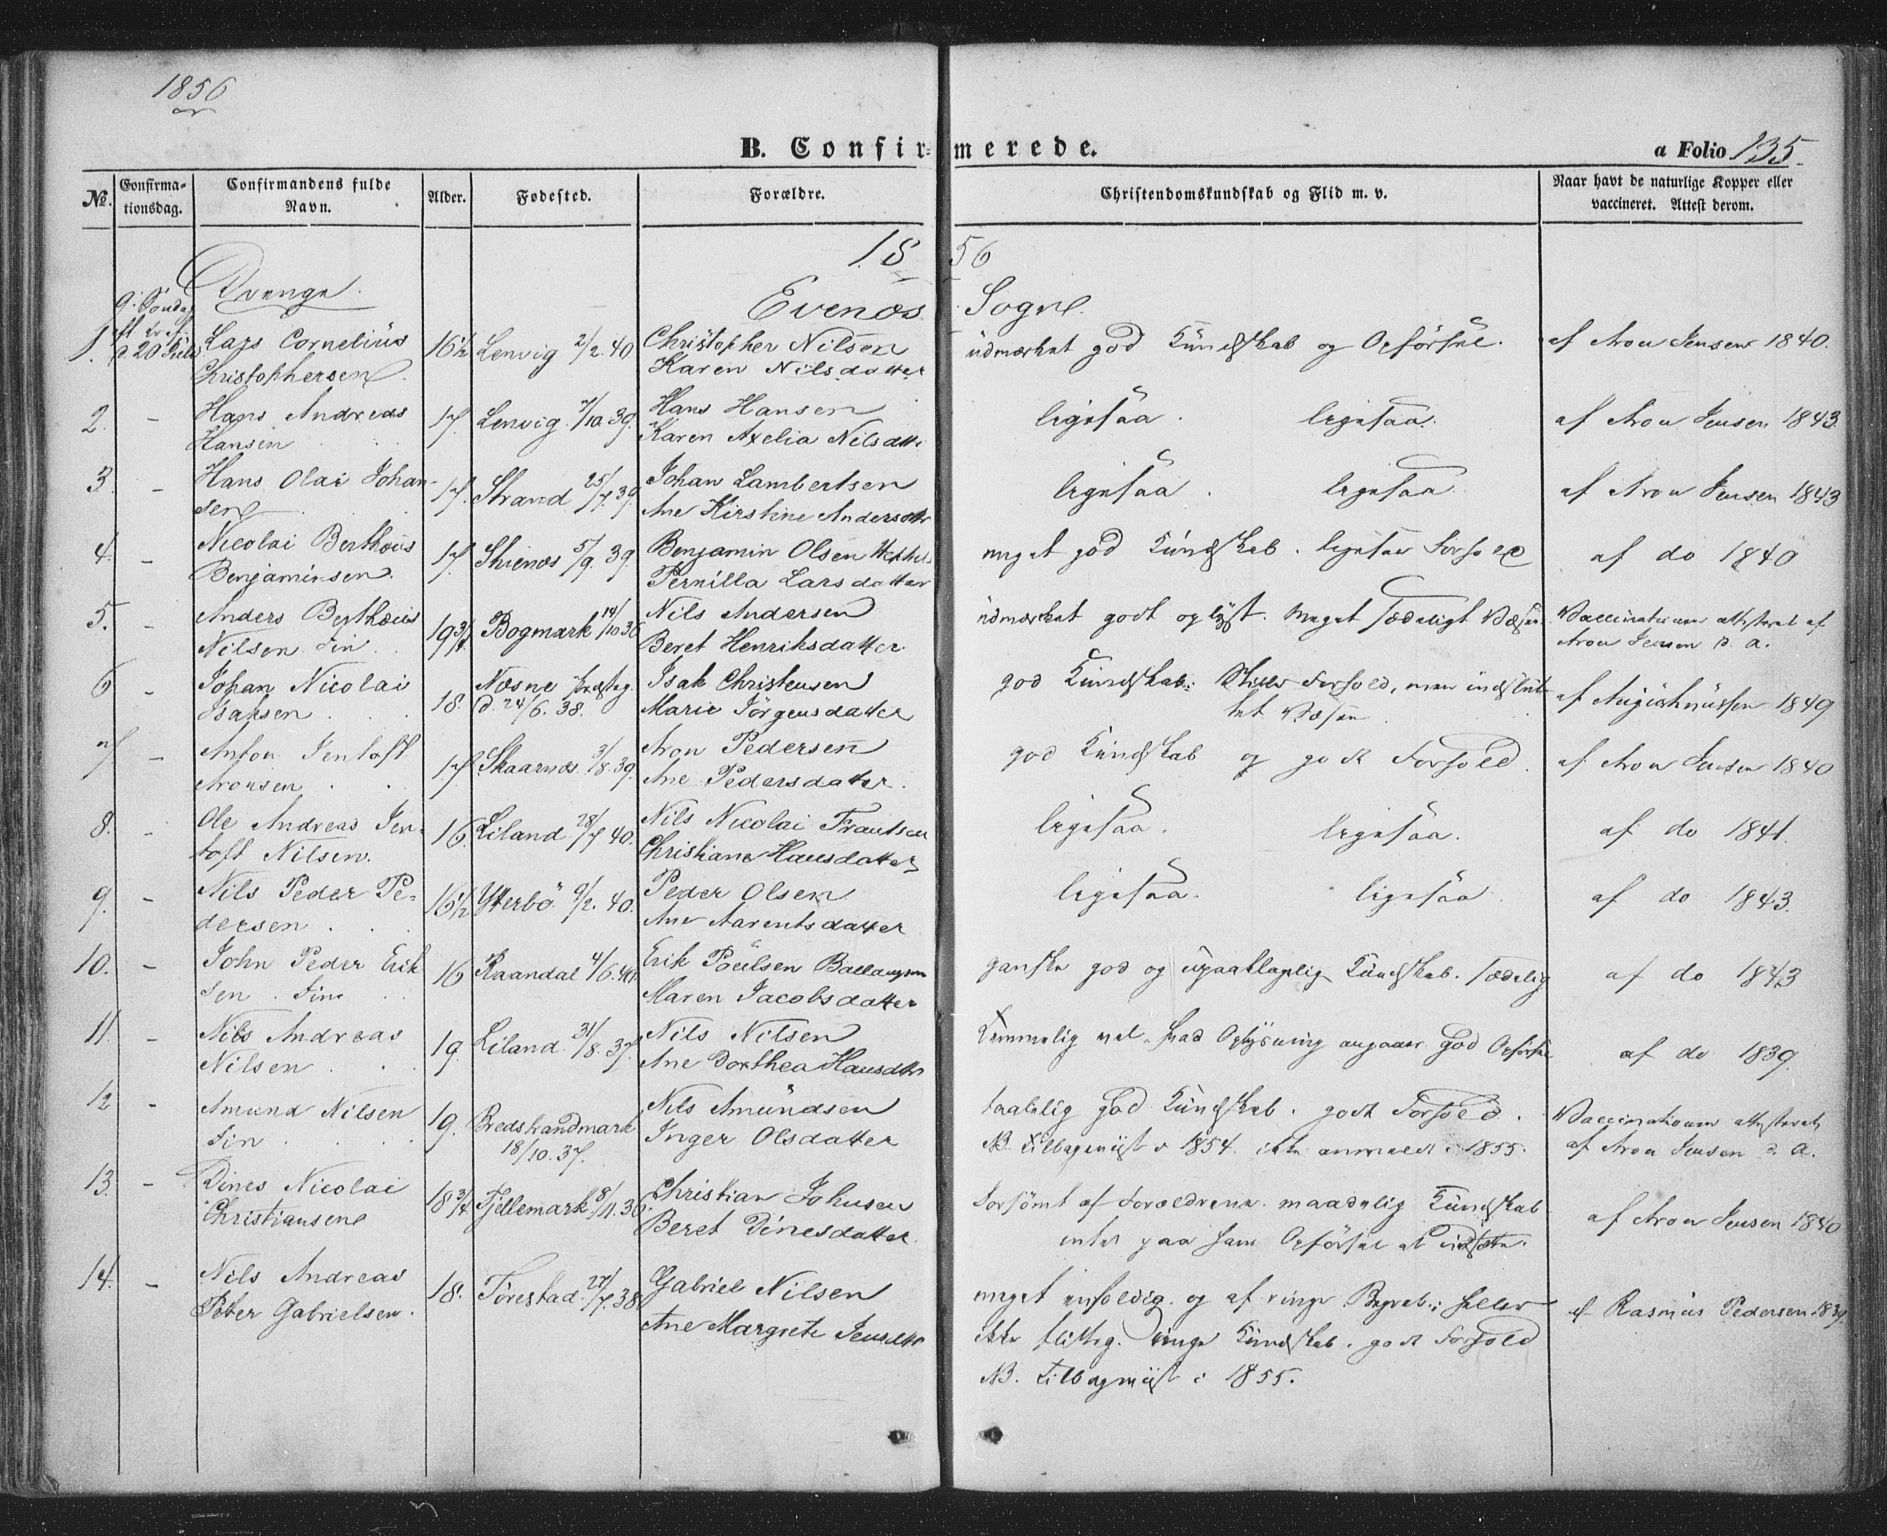 1856
B. Confirmerede.
a Folio 135.
No. Confirmationsdag. Confirmandens fulde Navn. Alder. Fødested. Forældre. Christendomskundskab og Flid m. v. Naar havt de naturlige Kopper eller vaccineret. Attest derom.
1856
Drenge.
Evenæs Sogn.
9. Söndag
1. Lars Cornelius 16½ Lenvig 2/2. 40 Christopher Nilsen udmærket god Kundskab og Opförsel. af Aron Jensen 1840.
Christophersen. Karen Nilsdatter
2. - Hans Andreas 17. Lenvig 7/10. 39. Hans Hansen ligesaa. ligesaa. af Aron Jensen 1843.
Hansen Karen Axelia Nilsdttr
3. - Hans Olai Johan- 17. Strand 25/7. 39. Johan Lambertsen ligesaa. ligesaa. af Aron Jensen 1843
sen Ane Kirstine Andersdttr
4. - Nicolai Berthæus 17. Skienæs 5/9. 39. Benjamin Olsen meget god Kundskab. ligesaa Forhold af do 1840
Benjaminsen. Pernilla Larsdatter
5. - Anders Berthæus 19¾ Bogmark 14/10 36 Nils Andersen udmærket godt oplyst. meget sædeligt Væsen Vaccinationen attesteret af
Nilsen Fin. Beret Henriksdatter. Aron Jensen d. a.
6 - Johan Nicolai 18. Næsne Præsteg. Isak Christensen god Kundskab. Stille Forhold, men indslut-
Isaksen d. 24/6. 38. Marie Jörgensdatter tet Væsen. af 1849
7 - Anton Jentoft 17 Skaarnæs 3/8. 39. Aron Pedersen god Kundskab og godt Forhold. af Aron Jensen 1840
Aronsen Ane Pedersdatter.
8. - Ole Andreas Jen- 16. Liland 28/7 40. Nils Nicolai Frantsen ligesaa. ligesaa. af do 1841.
toft Nilsen. Christiane Hansdatter
9. - Nils Peder Pe- 16½ Ytterbö 9/2. 40. Peder Olsen ligesaa. ligesaa. af do 1843.
dersen Ane Aarentsdatter
10. - John Peder Erik 16 Raandal 4/6. 40. Erik Poulsen Ballangen ganske god og upaaklagelig Kundskab. sædelig af do 1843
sen. Fin Maren Jacobsdatter
11. - Nils Andreas 19. Liland 31/8. 37. Nils Nilsen temmelig vel hvad Oplysning angaaer. God Opförsel af do 1839.
Nilsen Ane Dorthea Hansdttr
12 - Amund Nilsen 19. Bredstrandmark Nils Amundsen taalelig god Kundskab. godt Forhold. Vaccinationen attesteret
Fin 18/10. 37. Inger Olsdatter NB. tilbageviist i 1854. ikke anmeldt i 1855. af Aron Jensen d. a.
13. - Dines Nicolai 18¾ Fjellemark 8/11. 36. Christian Johnsen Forsömt af Forældrene. maadelig Kundskab af Aron Jensen 1840
Christiansen Beret Dinesdatter. intet paa hans Opförsel at udsætte.
14. - Nils Andreas 18. Törestad 27/7. 38 Gabriel Nilsen meget enfoldig og af ringe Begreb; heller af Rasmus Pedersen 1839
Peter Gabrielsen. Ane Margrete Jensdttr ikke flittig. ringe Kundskab. godt Forhold
NB. tilbageviist i 1855.